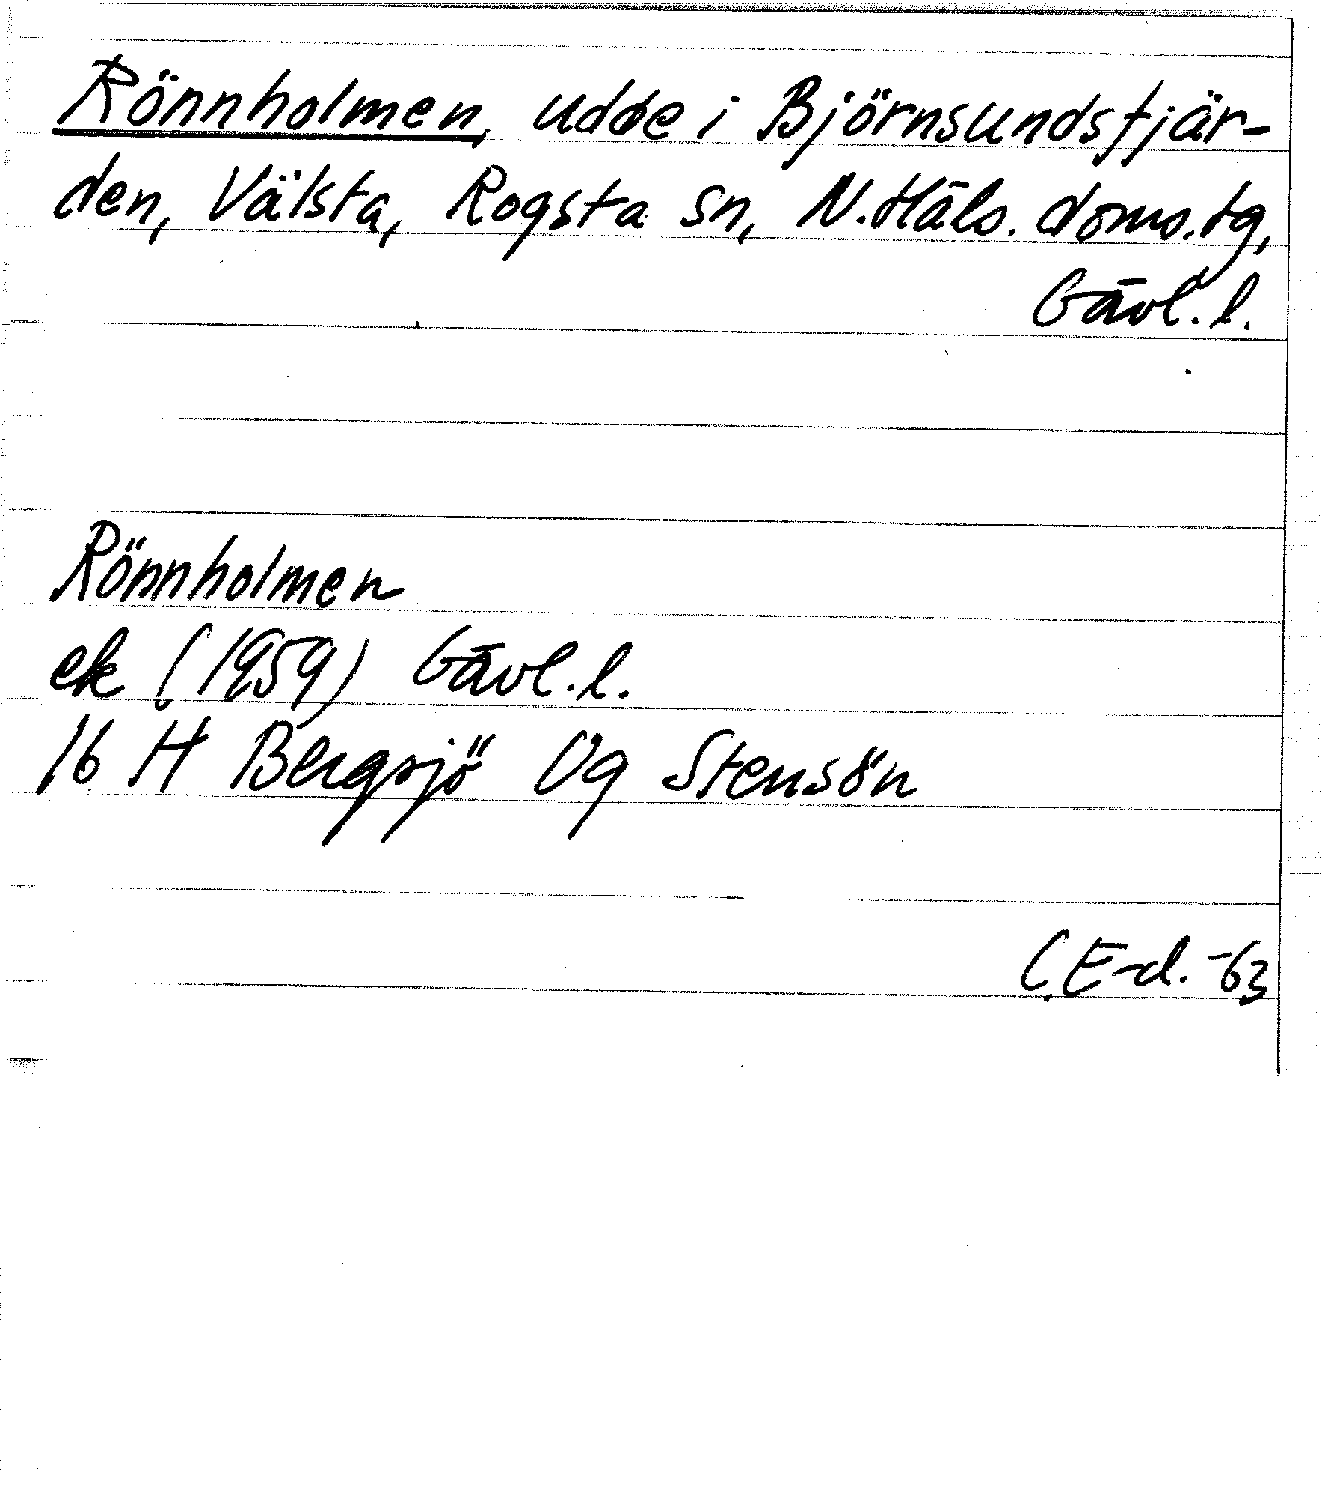 Rönnholmen, udde i Björnsundsfjär-
den, Välsta, Rogsta sn, N.Häls. doms.tg,
Gävl.l.
Rönnholmen
ek (1959) Gävl.l.
16 H Bergsjö Ög Stensön
C.E-d. -63